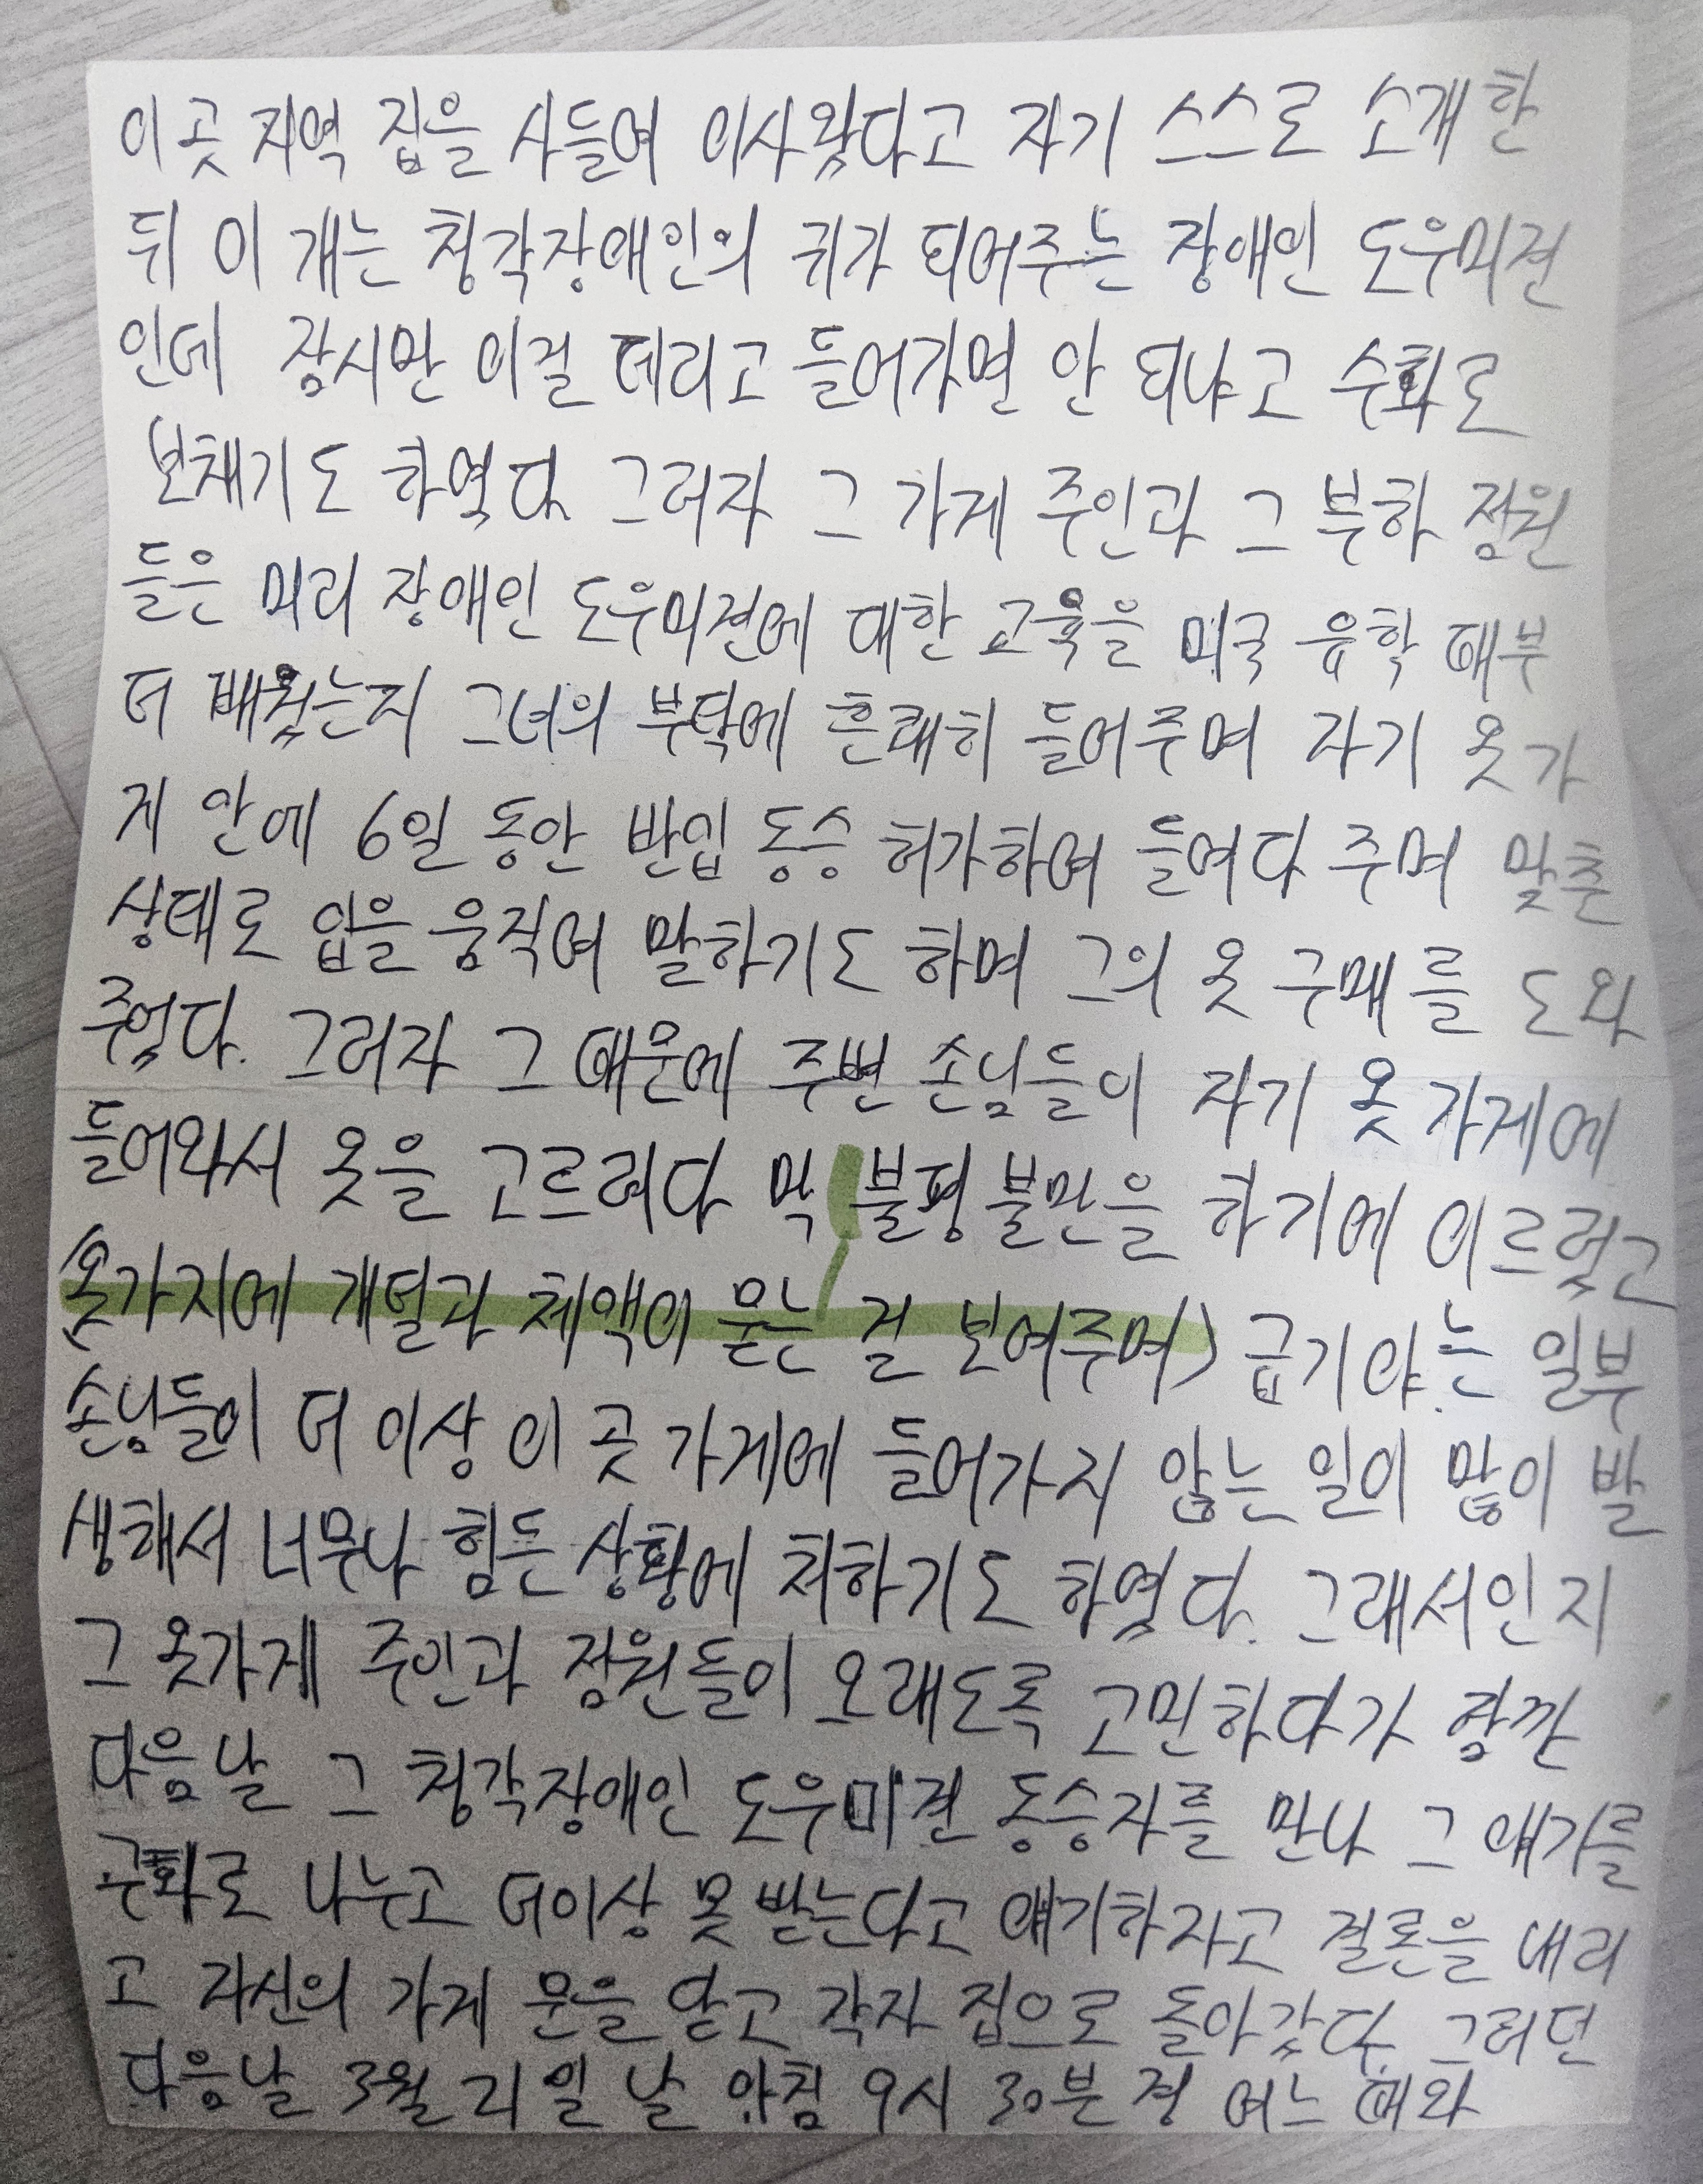 이 곳 지역 집을 사들여 이사왔다고 자기 스스로 소개한
뒤 이 개는 청각장애인의 귀가 되어주는 장애인 도우미견
인데 잠시만 이걸 데리고 들어가면 안 되냐고 수화로
보채기도 하였다. 그러자 그 가게 주인과 그 부하 점원
들은 미리 장애인 도우미견에 대한 교육을 미국 유학 때부
터 배웠는지 그녀의 부탁에 흔쾌히 들어주며 자기 옷가
게 안에 6일 동안 반입 동승 허가하여 들여다 주며 말춘
상태로 입을 움직여 말하기도 하며 그의 옷 구매를 도와
주었다. 그러자 그 때문에 주변 손님들이 자기 옷 가게에
들어와서 옷을 고르려다 막 불평 불만을 하기에 이르렀고
(옷가지에 개털과 체액이 묻는 걸 보여주며) 급기야는 일부
손님들이 더 이상 이 곳 가게에 들어가지 않는 일이 많이 발
생해서 너무나 힘든 상황에 처하기도 하였다. 그래서인지
그 옷가게 주인과 점원들이 오래도록 고민하다가 잠깐
다음날 그 청각장애인 도우미견 동승자를 만나 그 얘기를
수화로 나누고 더이상 못 받는다고 얘기하자고 결론을 내리
고 자신의 가게 문을 닫고 각자 집으로 돌아갔다. 그러던
다음날 3월 21일 날 아침 9시 30분 경 여느 때와